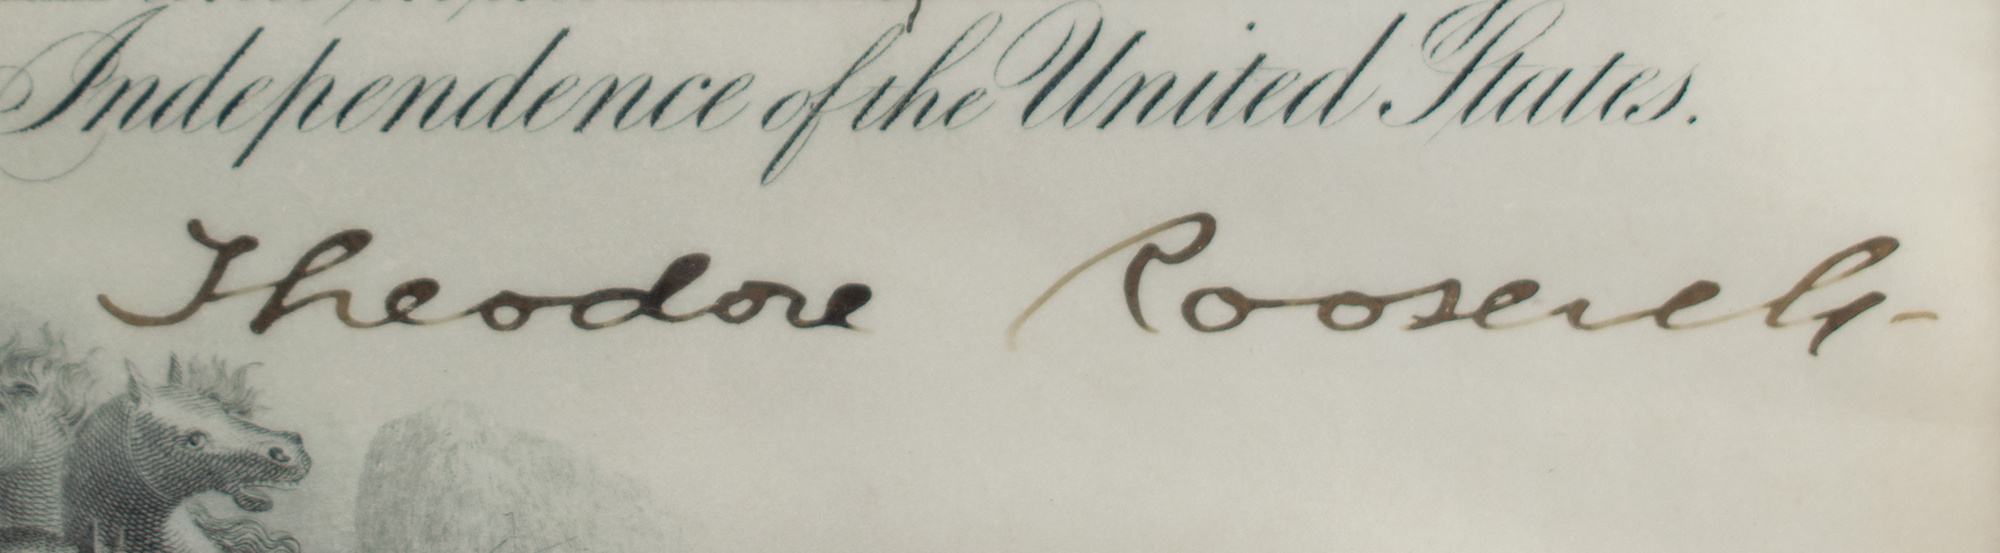 Independence of the United States.
Theodore Roosevelt